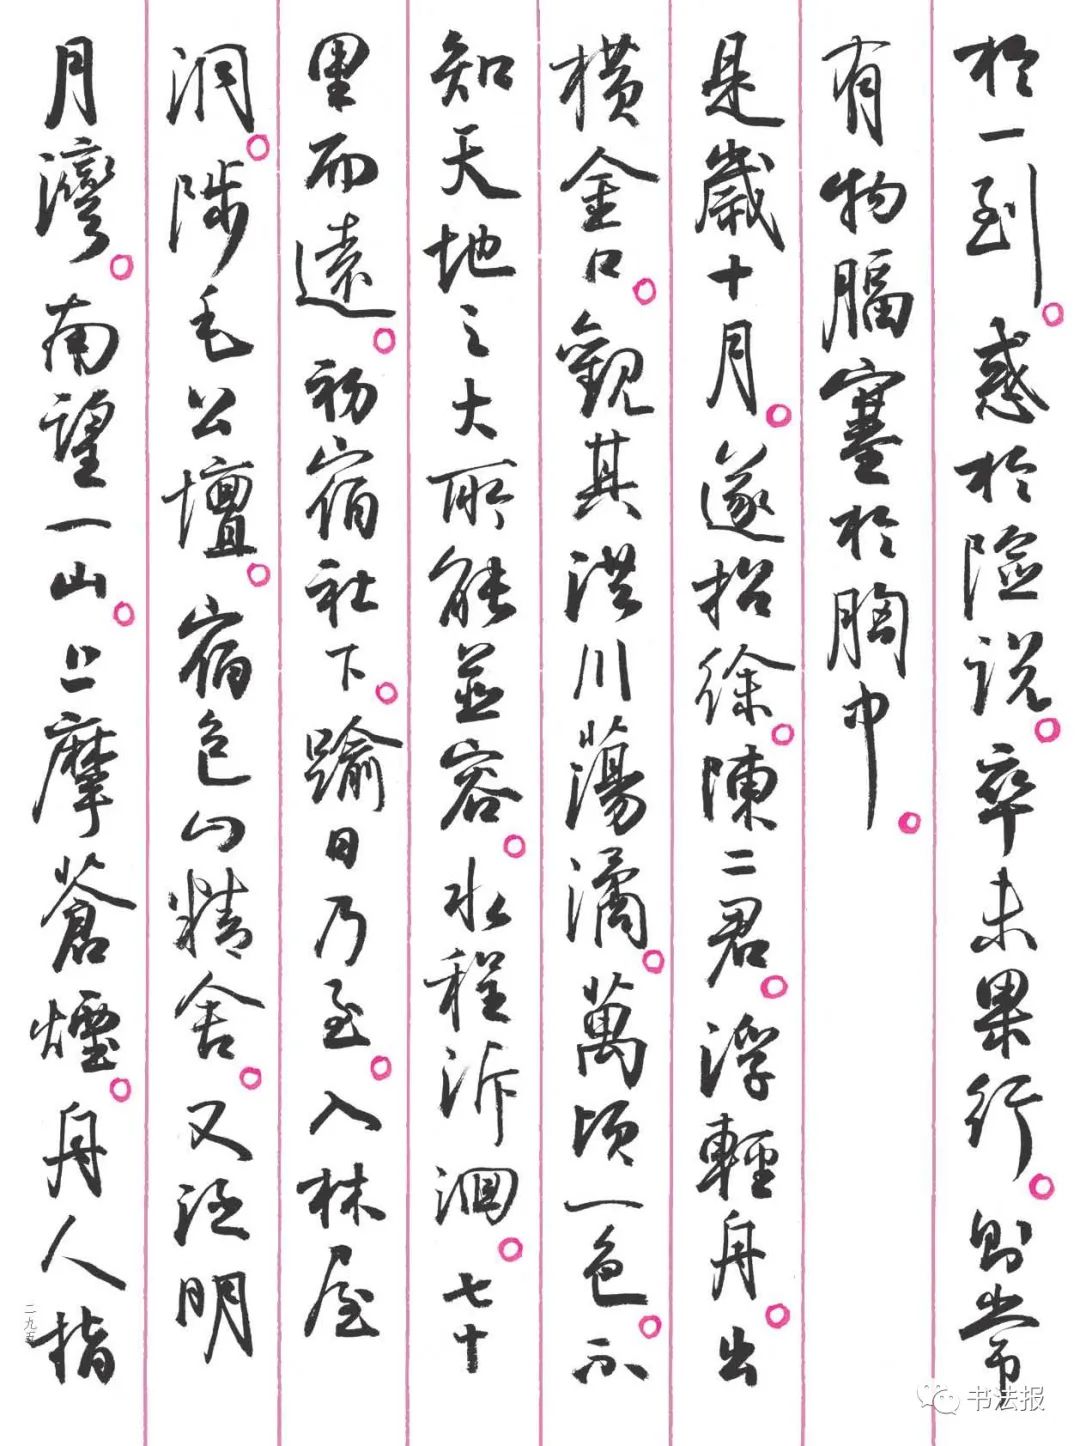 於一到。惑於險説。卒未果行。則常
有物腷塞於胸中。
是歲十月。遂招徐。陳二君。浮輕舟。出
横金口。觀其洪川蕩潏。萬頃一色。不
知天地之大所能並容。水程泝洄。七十
里而遠。初宿社下。踰日乃至。入林屋
洞。陟毛公壇。宿包山精舍。又泛明
月灣。南望一山。上摩蒼煙。舟人指
二九五
书法报